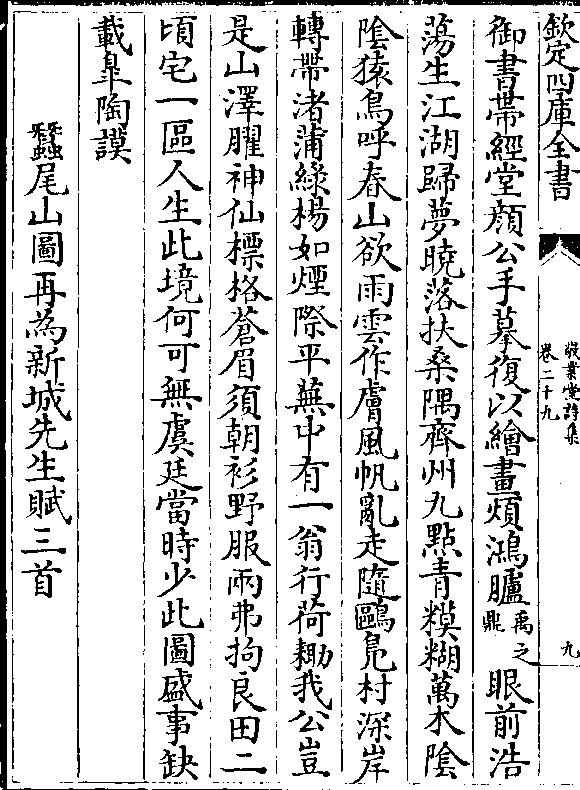 欽定四庫全書
敬業堂詩集
卷二十九
九
御書帶經堂顔公手摹復以繪畫煩鴻臚禹之鼎眼前浩
蕩生江湖歸夢曉落扶桑隅齊州九點青糢糊萬木陰
陰猿鳥呼春山欲雨雲作膚風帆亂走隨鷗鳬村深岸
轉帶渚蒲緑楊如煙際平蕪中有一翁行荷耡我公豈
是山澤臞神仙標格蒼眉須朝衫野服兩弗拘良田二
頃宅一區人生此境何可無虞廷當時少此圖盛事缺
載臯陶謨
蠶尾山圖再為新城先生賦三首